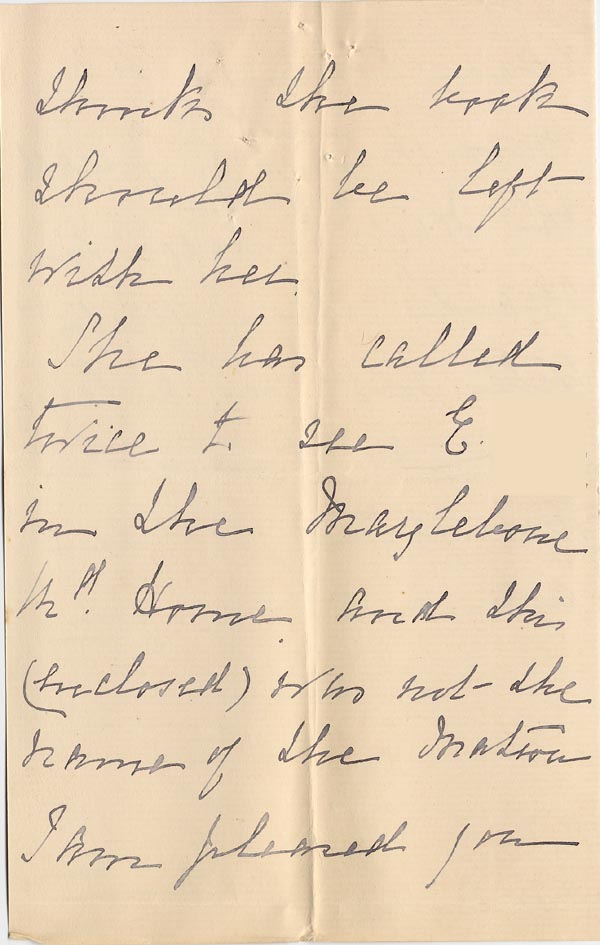 thinks the book
should be left
with her.
She has called
twice to see E.
in the Marylebone
Rd. Home. and this
(enclosed) was not the
name of the Matron
I am pleased you